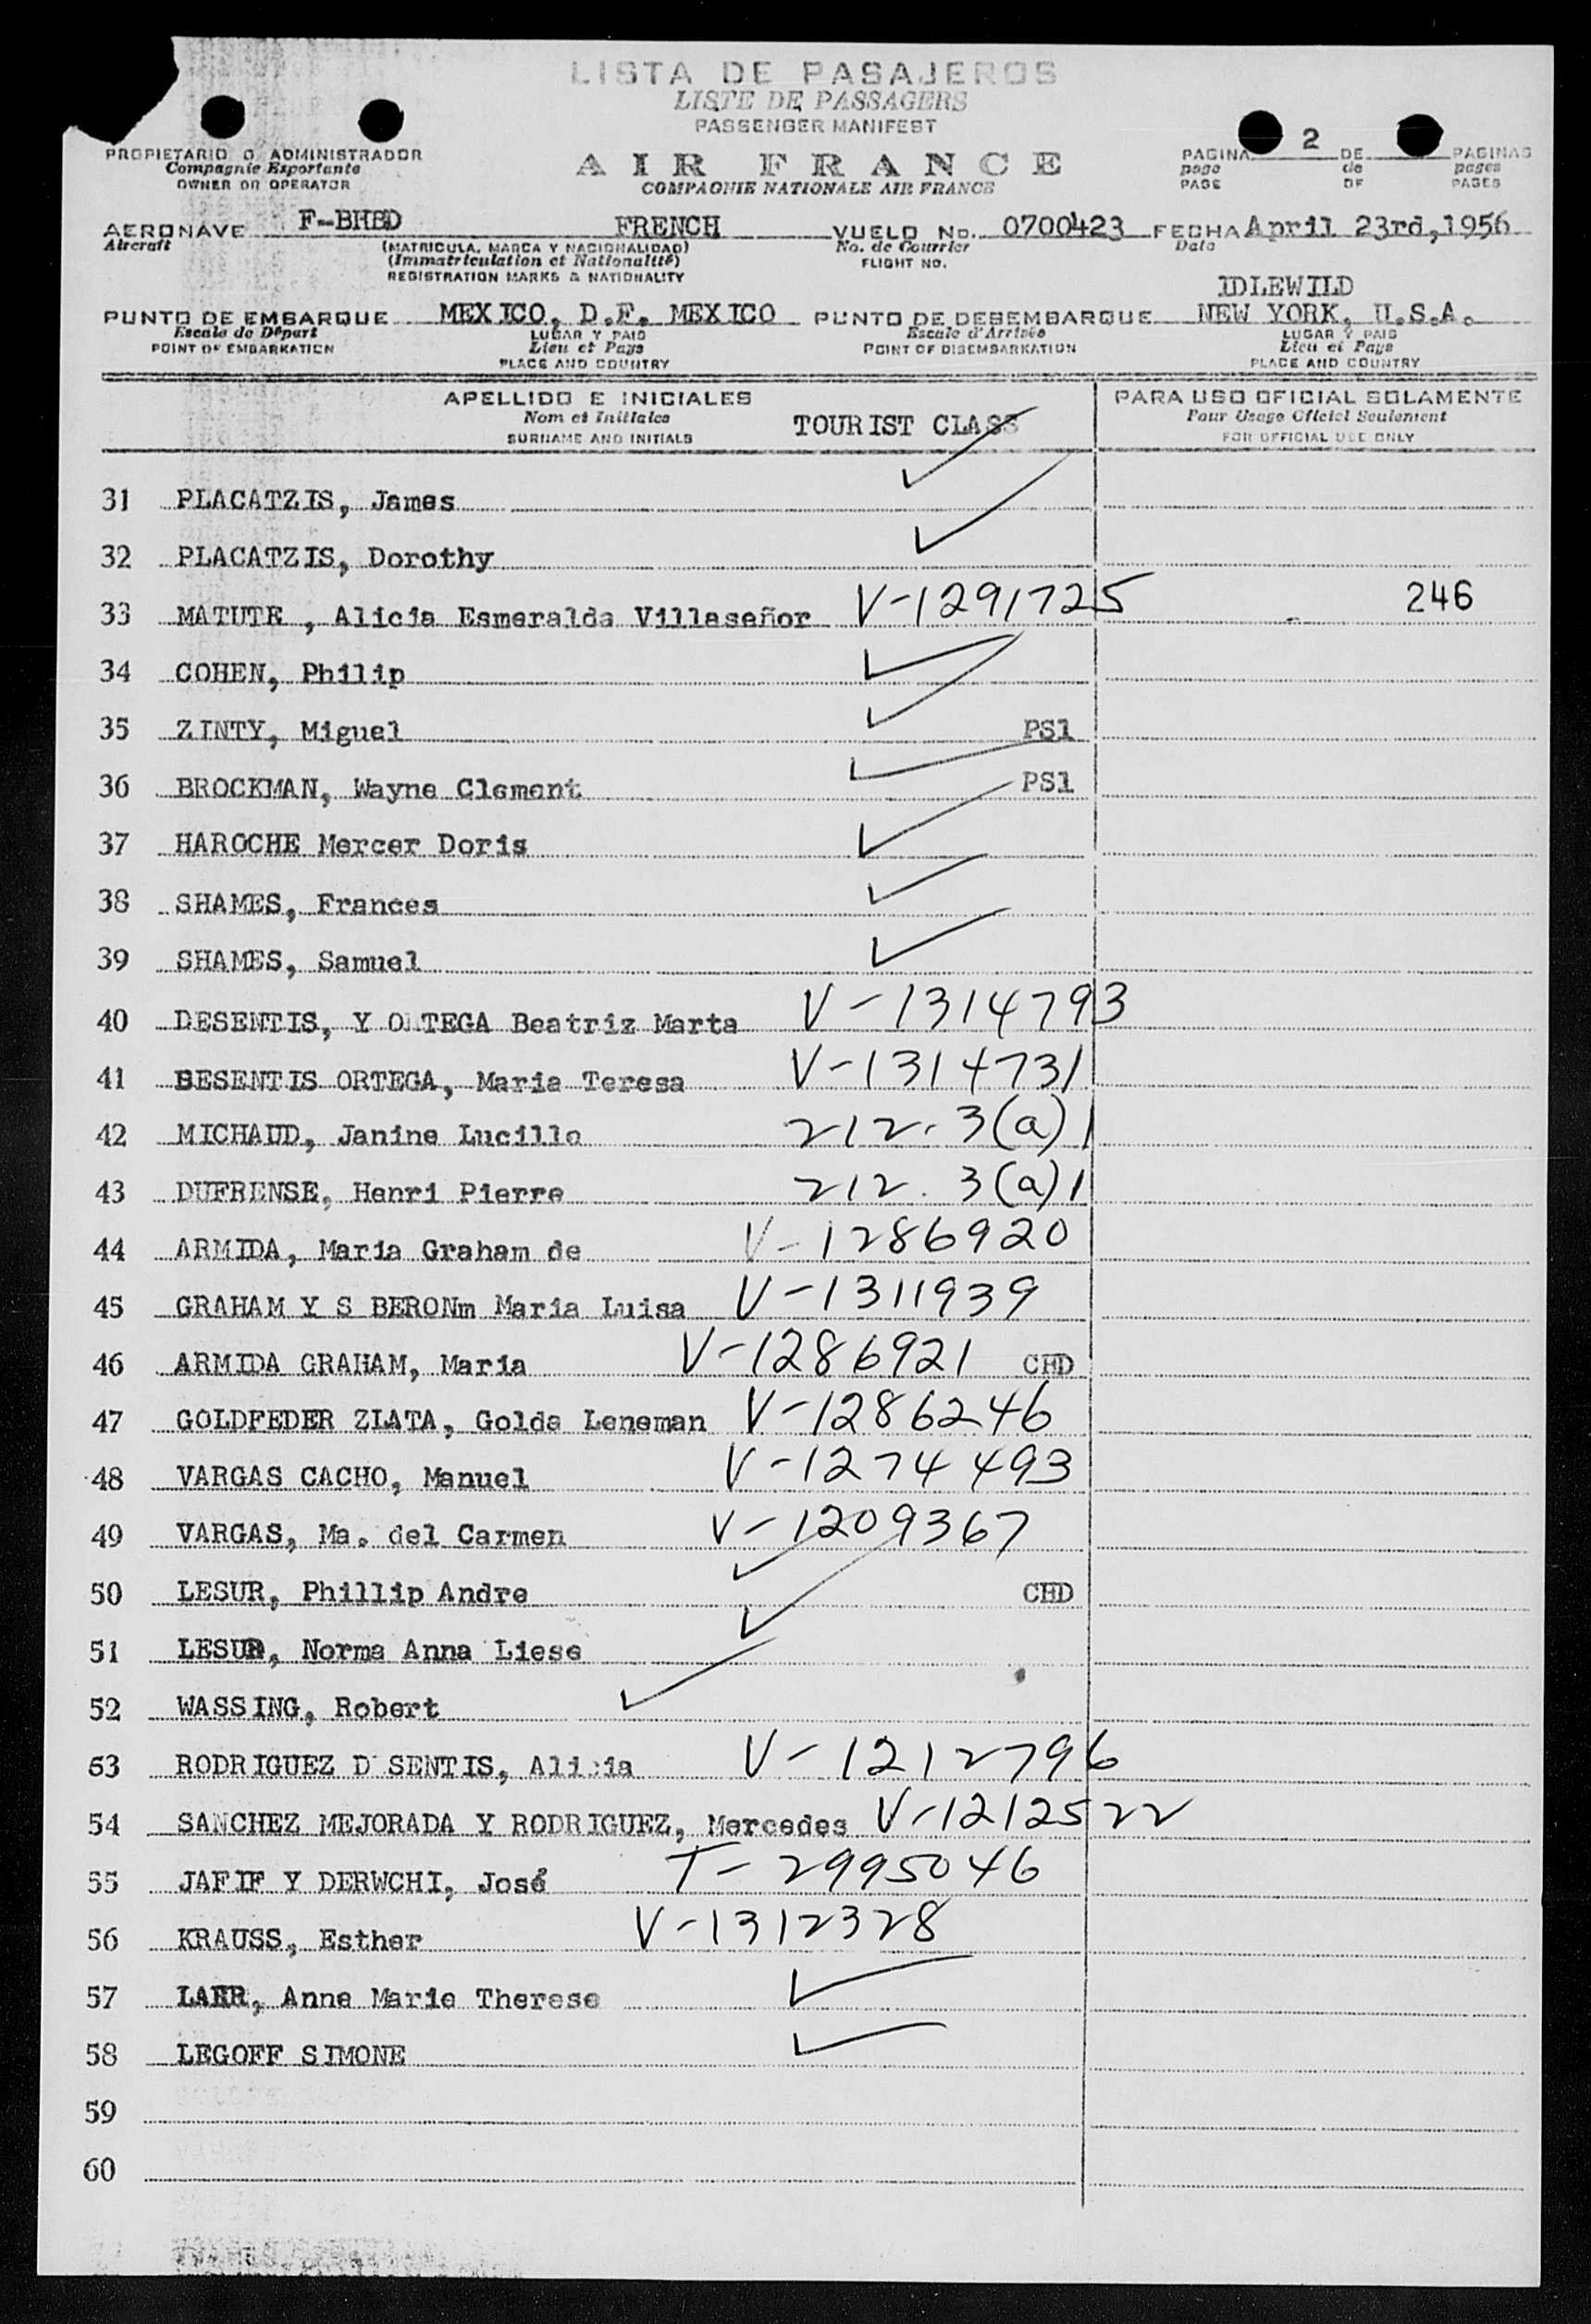 LISTA DE PASAJEROS
LISTE DE PASSAGERS
PASSENGER MANIFEST
PROPIETARIO O ADMINISTRADOR
Compagnie Exportante
OWNER OR OPERATOR
AIR FRANCE
COMPAGNIE NATIONALE AIR FRANCE
PAGINA 2 DE PAGINAS
page de pages
PAGE OF PAGES
AERONAVE F-BHBD FRENCH VUELO No. 0700423 FECHA April 23rd,1956
Aircraft (MATRICULA, MARCA Y NACIONALIDAD) No. de Courrier Date
(Immatriculation et Nationalité) FLIGHT NO.
REGISTRATION MARKS & NATIONALITY
IDLEWILD
PUNTO DE EMBARQUE MEXICO, D.F. MEXICO PUNTO DE DESEMBARQUE NEW YORK, U.S.A.
Escale de Départ LUGAR Y PAIS Escale d'Arrivée LUGAR Y PAIS
POINT OF EMBARKATION Lieu et Pays POINT OF DISEMBARKATION Lieu et Pays
PLACE AND COUNTRY PLACE AND COUNTRY
APELLIDO E INICIALES PARA USO OFICIAL SOLAMENTE
Nom et Initiales TOURIST CLASS Pour Usage Officiel Seulement
SURNAME AND INITIALS FOR OFFICIAL USE ONLY
31 PLACATZIS, James
32 PLACATZIS, Dorothy
33 MATUTE , Alicia Esmeralda Villaseñor V-1291725 246
34 COHEN, Philip
35 ZINTY, Miguel PS1
36 BROCKMAN, Wayne Clement PS1
37 HAROCHE Mercer Doris
38 SHAMES, Frances
39 SHAMES, Samuel
40 DESENTIS, Y O TEGA Beatriz Marta V-1314793
41 BESENTIS ORTEGA, Maria Teresa V-1314731
42 MICHAUD, Janine Lucille 212.3(a)1
43 DUFRENSE, Henri Pierre 212.3(a)1
44 ARMIDA, Maria Graham de V-1286920
45 GRAHAM Y S BERONm Maria Luisa V-1311939
46 ARMIDA GRAHAM, Maria V-1286921 CHD
47 GOLDFEDER ZLATA, Golda Leneman V-1286246
48 VARGAS CACHO, Manuel V-1274493
49 VARGAS, Ma. del Carmen V-1209367
50 LESUR, Phillip Andre CHD
51 LESUR, Norma Anna Liese
52 WASSING, Robert
53 RODRIGUEZ D SENTIS, Alicia V-1212796
54 SANCHEZ MEJORADA Y RODRIGUEZ, Mercedes V-1212522
55 JAFIF Y DERWCHI, José T-2995046
56 KRAUSS, Esther V-1312328
57 LAER, Anne Marie Therese
58 LEGOFF SIMONE
59
60